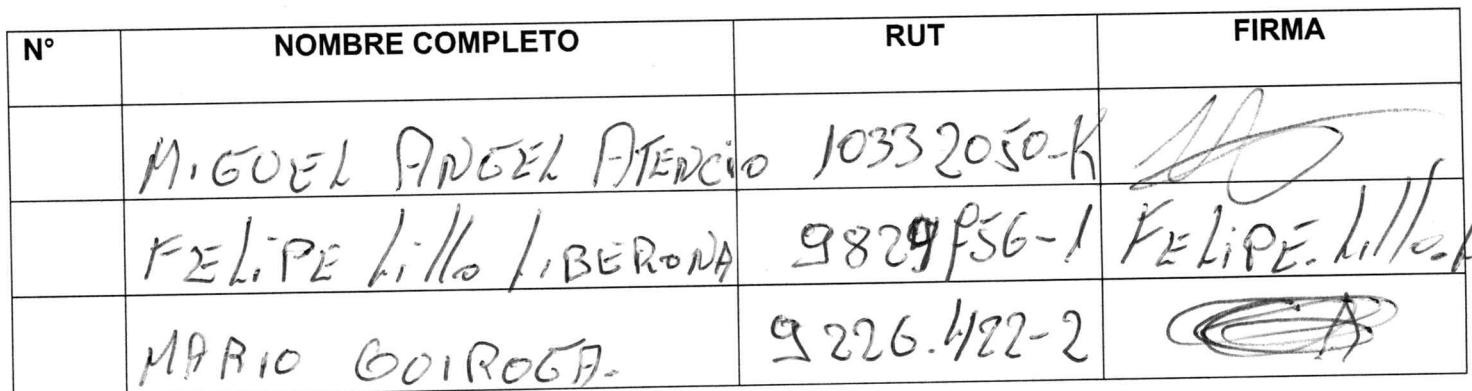 N° NOMBRE COMPLETO RUT FIRMA
MIGUEL ANGEL ATENCIO 10332050-K
FELIPE Lillo LIBERONA FELIPE. Lillo.L
MARIO QUIROGA. 9226.422-2